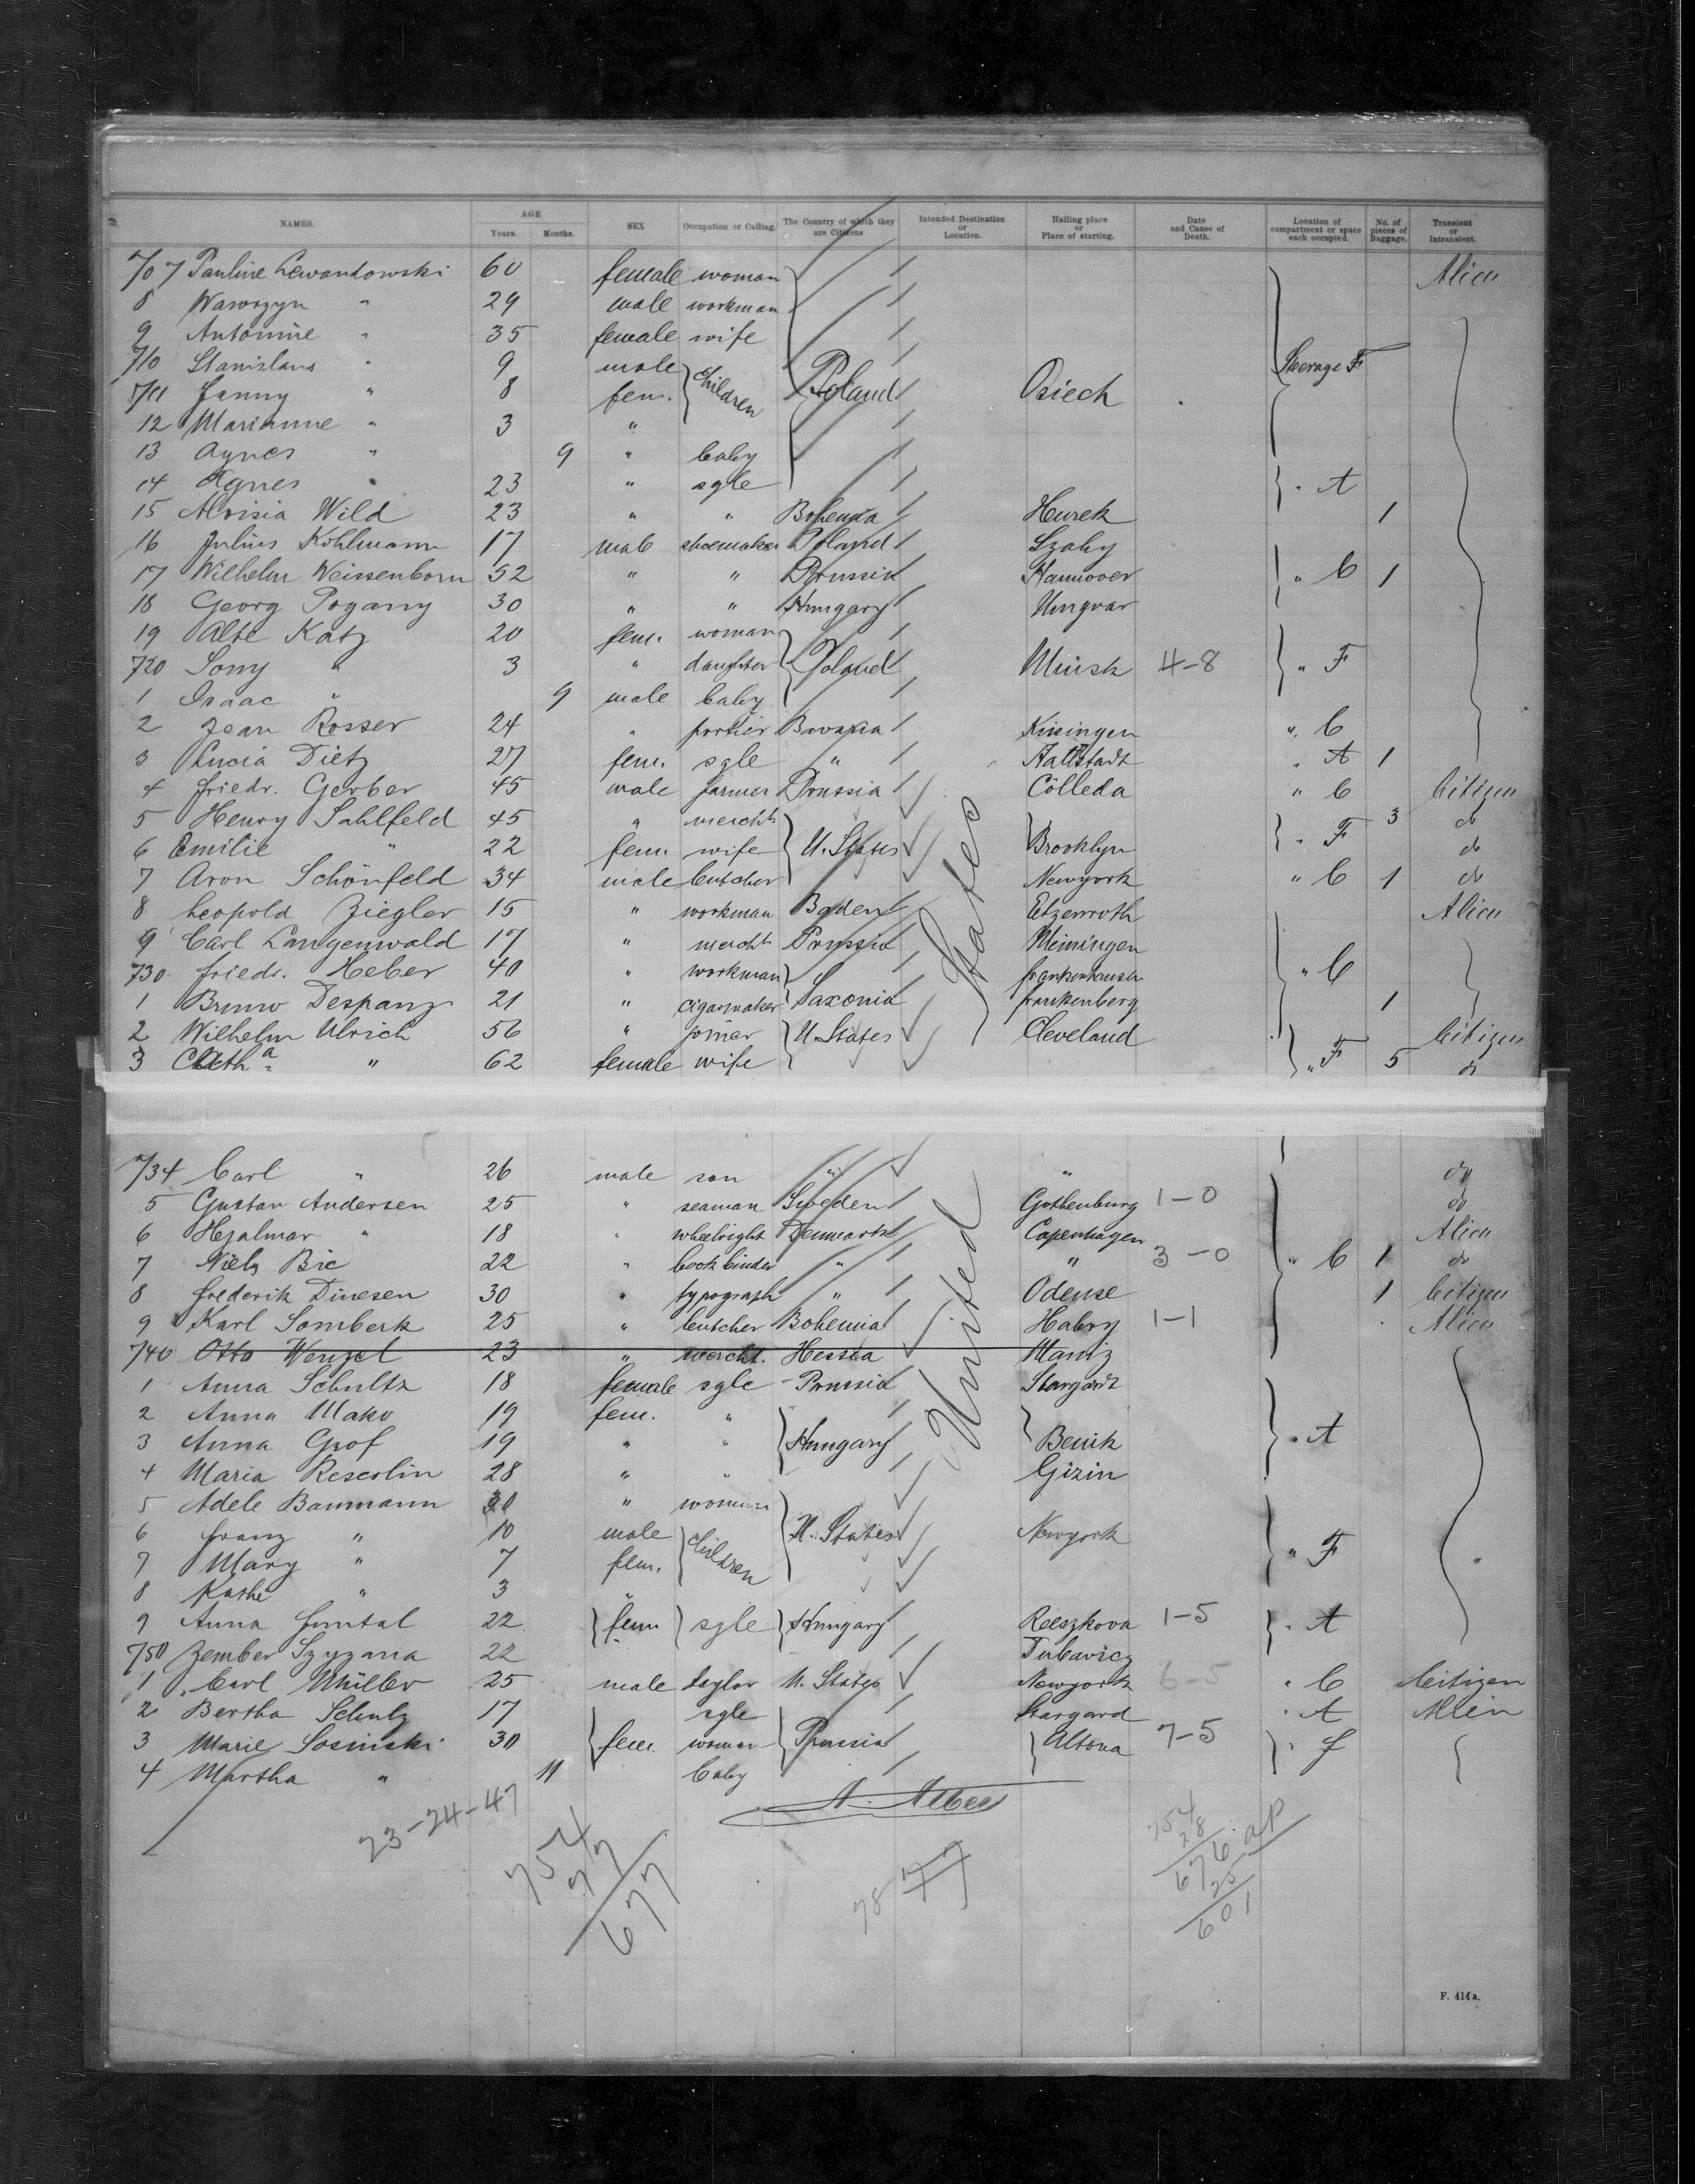 NAMES. AGE Years. Months. SEX Occupation or Calling. The Country of which they are Citizens Intended Destination or Location. Hailing place or Place of starting. Date and Cause of Death. Location of compartment or space each occupied. No. of pieces of Baggage. Transient or Intransient.
707 Pauline Lewandowski 60 female woman Alien
8 Wawrzyn " 29 male workman
9 Antonine " 35 female wife
710 Stanislaus " 9 male children Poland Osiech Steerage F
711 Fanny " 8 fem.
12 Marianne " 3 "
13 Agnes " 9 " baby
14 Agnes " 23 " sgle " A
15 Aloisia Wild 23 " " Bohemia 1
16 Julius Kohlmann 17 male shoemaker Poland
17 Wilhelm Weissenborn 52 " " Prussia Hannover " C 1
18 Georg Pogany 30 " " Hungary Ungvar
19 Alte Katz 20 fem. woman
720 Sony " 3 " daughter Poland Minsk 4-8 " F
1 Isaac " 9 male baby
2 Jean Rosser 24 " portier Bavaria Kissingen " C
3 Lucia Dietz 27 fem. sgle " " A 1
4 Friedr. Gerber 45 male farmer Prussia Cölleda " C Citizen
5 Henry Sahlfeld 45 " mercht 3 do
6 Emilie " 22 fem. wife U. States Brooklyn " F do
7 Aron Schönfeld 34 male butcher Newyork " C 1 do
8 Leopold Ziegler 15 " workman Baden Etzenroth Alien
9 Carl Langenwald 17 " mercht Prussia Meiningen
730 Friedr. Heber 40 " workman Frankenhausen " C
1 Bruno Despang 21 " cigarmaker Saxonia Frankenberg 1
2 Wilhelm Ulrich 56 " joiner U. States Cleveland Citizen
3 Catha " 62 female wife " F 5 do
734 Carl " 26 male son " " do
5 Gustav Andersen 25 " seaman Sweden Gothenburg 1-0 do
6 Hjalmar " 18 " wheelright Denmark Copenhagen Alien
7 Niels Bie 22 " bookbinder " " 3-0 " C 1 do
8 Frederik Dinesen 30 " typograph " Odense 1 Citizen
9 Karl Somberk 25 " butcher Bohemia Habry 1-1 Alien
740 Otto Wenzel 23 " mercht. Hessia Mainz
1 Anna Schultz 18 female sgle Prussia Stargardt
2 Anna Mako 19 fem. "
3 Anna Grof 19 " " Hungary Benik " A
4 Maria Rescolin 28 " " Gizin
5 Adele Baumann 30 " woman
6 Franz " 10 male children U. States Newyork
7 Mary " 7 fem. " F
8 Kathe " 3 "
9 Anna 22 fem sgle Hungary Reeszkova 1-5 " A
750 Zember Szyzana 22
1 Carl Müller 25 male taylor U. States Newyork 6-5 " C Citizen
2 Bertha Schulz 17 sgle Stargard " A Alien
3 Marie Sosinski 30 fem. woman Prussia Altona 7-5 " f
4 Martha " 11 baby
United States
23-24-47
754
77
677
78 77
754
28
676. AP
25
601
F. 414a.